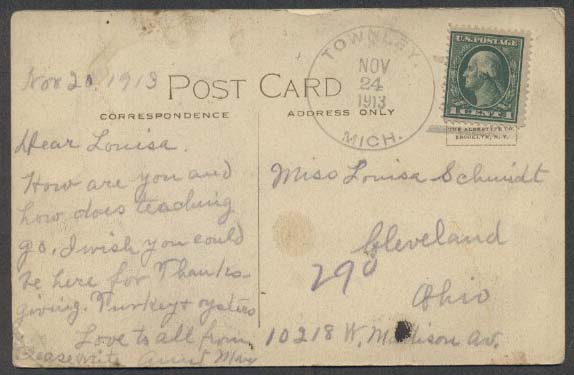 Nov 20, 1913
POST CARD
CORRESPONDENCE
ADDRESS ONLY
TOWNLEY
NOV
24
1913
MICH.
U.S. POSTAGE
1 CENT 1
THE ALBERTYPE CO.
BROOKLYN, N.Y.
Dear Louisa.
How are you and
how does teaching
go. I wish you could
be here for Thanks-
giving. Turkey & oysters
Love to all from
Please write Aunt May
Miss Louisa Schmidt
Cleveland
290
Ohio
10218 W. Madison Av.